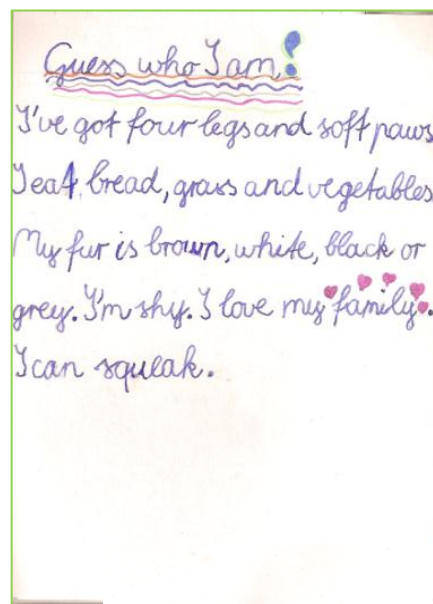 Guess who I am!
I've got four legs and soft paws
I eat bread, grass and vegetables
My fur is brown, white, black or
grey. I'm shy. I love my family.
I can squeak.